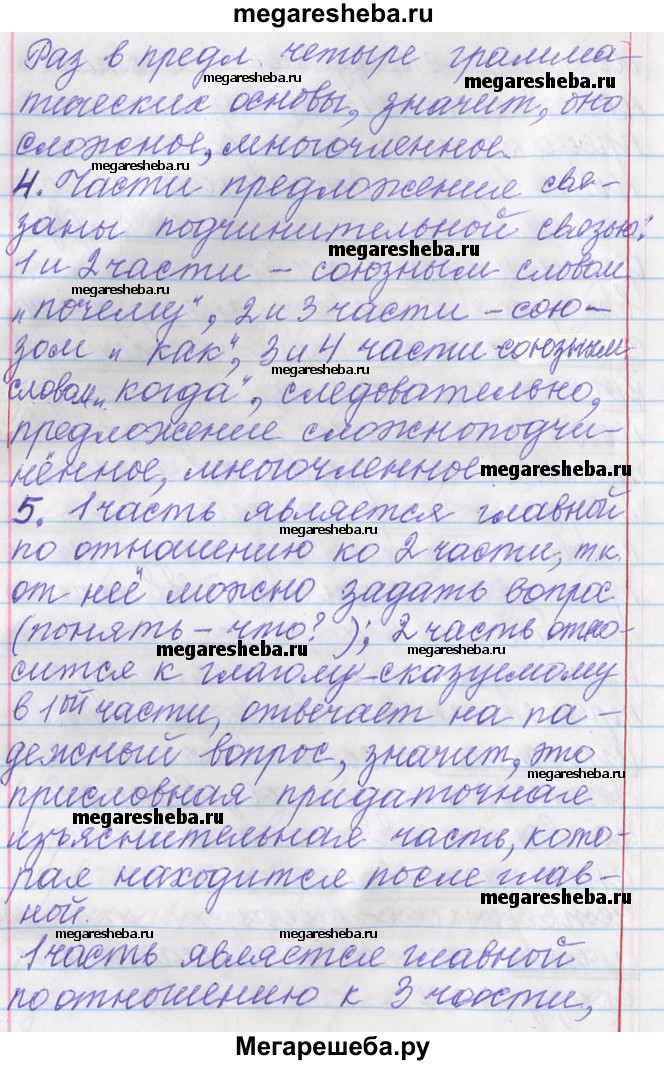 megaresheba.ru
Раз в предл. четыре грамма-
megaresheba.ru megaresheba.ru
тических основы, значит, оно
сложное, многочленное.
megaresheba.ru
4. Части предложение свя-
заны подчинительной связью:
megaresheba.ru
1 и 2 части – союзным словом
megaresheba.ru
„почему", 2 и 3 части – сою-
зом „как", 3 и 4 части союзным
megaresheba.ru
словом „когда", следовательно,
предложение сложноподчи-
нённое, многочленное.
megaresheba.ru
5. 1 часть является главной
megaresheba.ru
по отношению ко 2 части, т.к.
от неё можно задать вопрос
(понять – что?); 2 часть отно-
megaresheba.ru megaresheba.ru
сится к глаголу-сказуемому
в 1ой части, отвечает на па-
дежный вопрос, значит, это
megaresheba.ru
присловная придаточная
megaresheba.ru
изъяснительная часть, кото-
рая находится после глав-
megaresheba.ru
ной.
megaresheba.ru
1 часть является главной
по отношению к 3 части,
Мегарешеба.ру